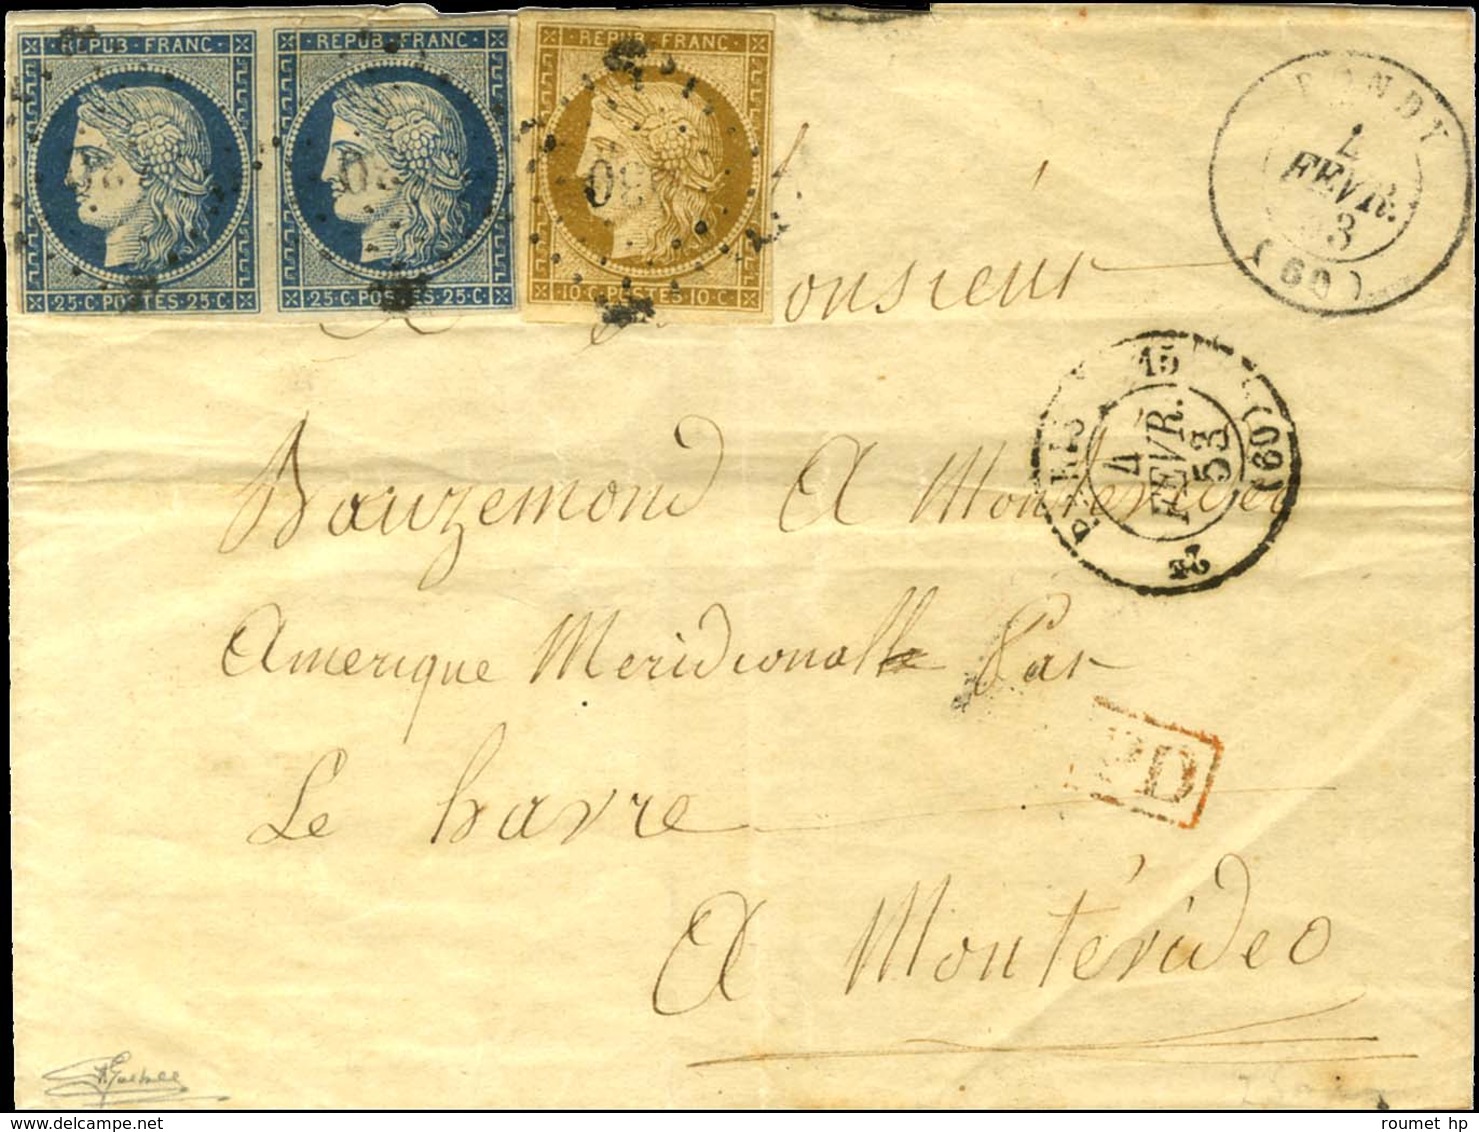 REPUB · FRANC
REPUB · FRANC
REPUB · FRANC
25·C POSTES 25·C
25·C POSTES 25·C
10·C POSTES 10·C
BONDY
4
FEVR.
53
(60)
Monsieur
PARIS
15
4
FEVR.
53
(60)
Bauzemond A Montevideo
Amerique Meridionalle Par
Le havre
PD
A Montévideo
roumet hp